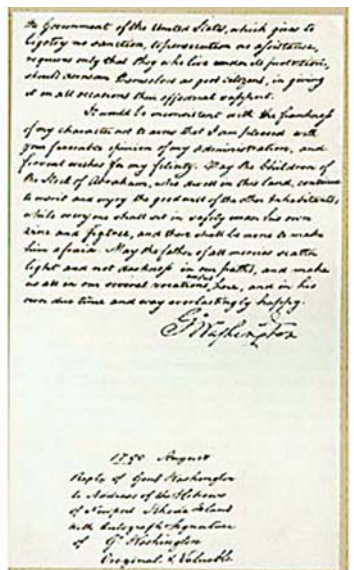 the Government of the United States, which gives to
bigotry no sanction, to persecution no assistance,
requires only that they who live under its protection,
should demean themselves as good citizens, in giving
it on all occasions their effectual support.
It would be inconsistent with the frankness
of my character not to avow that I am pleased with
your favorable opinion of my administration, and
fervent wishes for my felicity. May the Children of
the Stock of Abraham, who dwell in this land, continue
to merit and enjoy the good will of the other Inhabitants,
while every one shall sit in safety under his own
vine and figtree, and there shall be none to make
him afraid. May the father of all mercies scatter
light and not darkness in our paths, and make
us all in our several vocations useful here, and in his
own due time and way everlastingly happy.
G. Washington
1790 August
Reply of Genl Washington
to Address of the Hebrews
of Newport Rhode Island
with Autograph Signature
of G. Washington
Original & Valuable